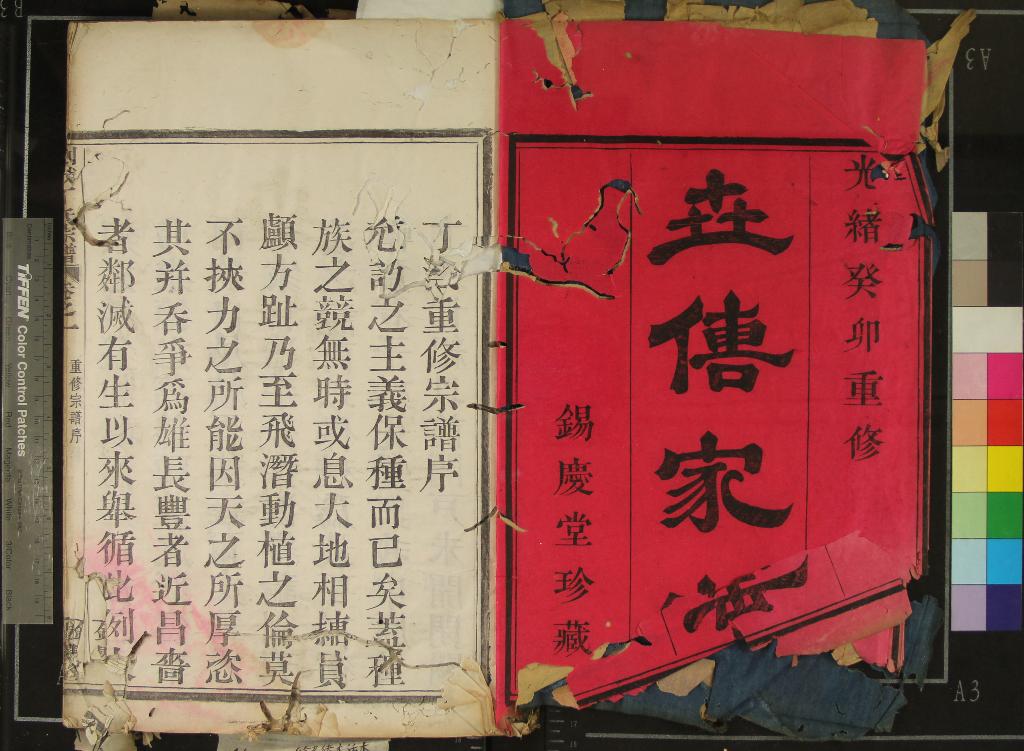 光緒癸卯重修
世傳家
錫慶堂珍藏
丁 重修宗譜序
之主義保種而已矣蓋種
族之競無時或息大地相 員
顱方趾乃至飛潛動植之倫莫
不挾力之所能因天之所厚恣
其并吞爭爲雄長豐者近昌嗇
者鄰滅有生以來舉循此例
宗譜
卷之一
重修宗譜序
TIFFEN Color Control Patches
A3
A3